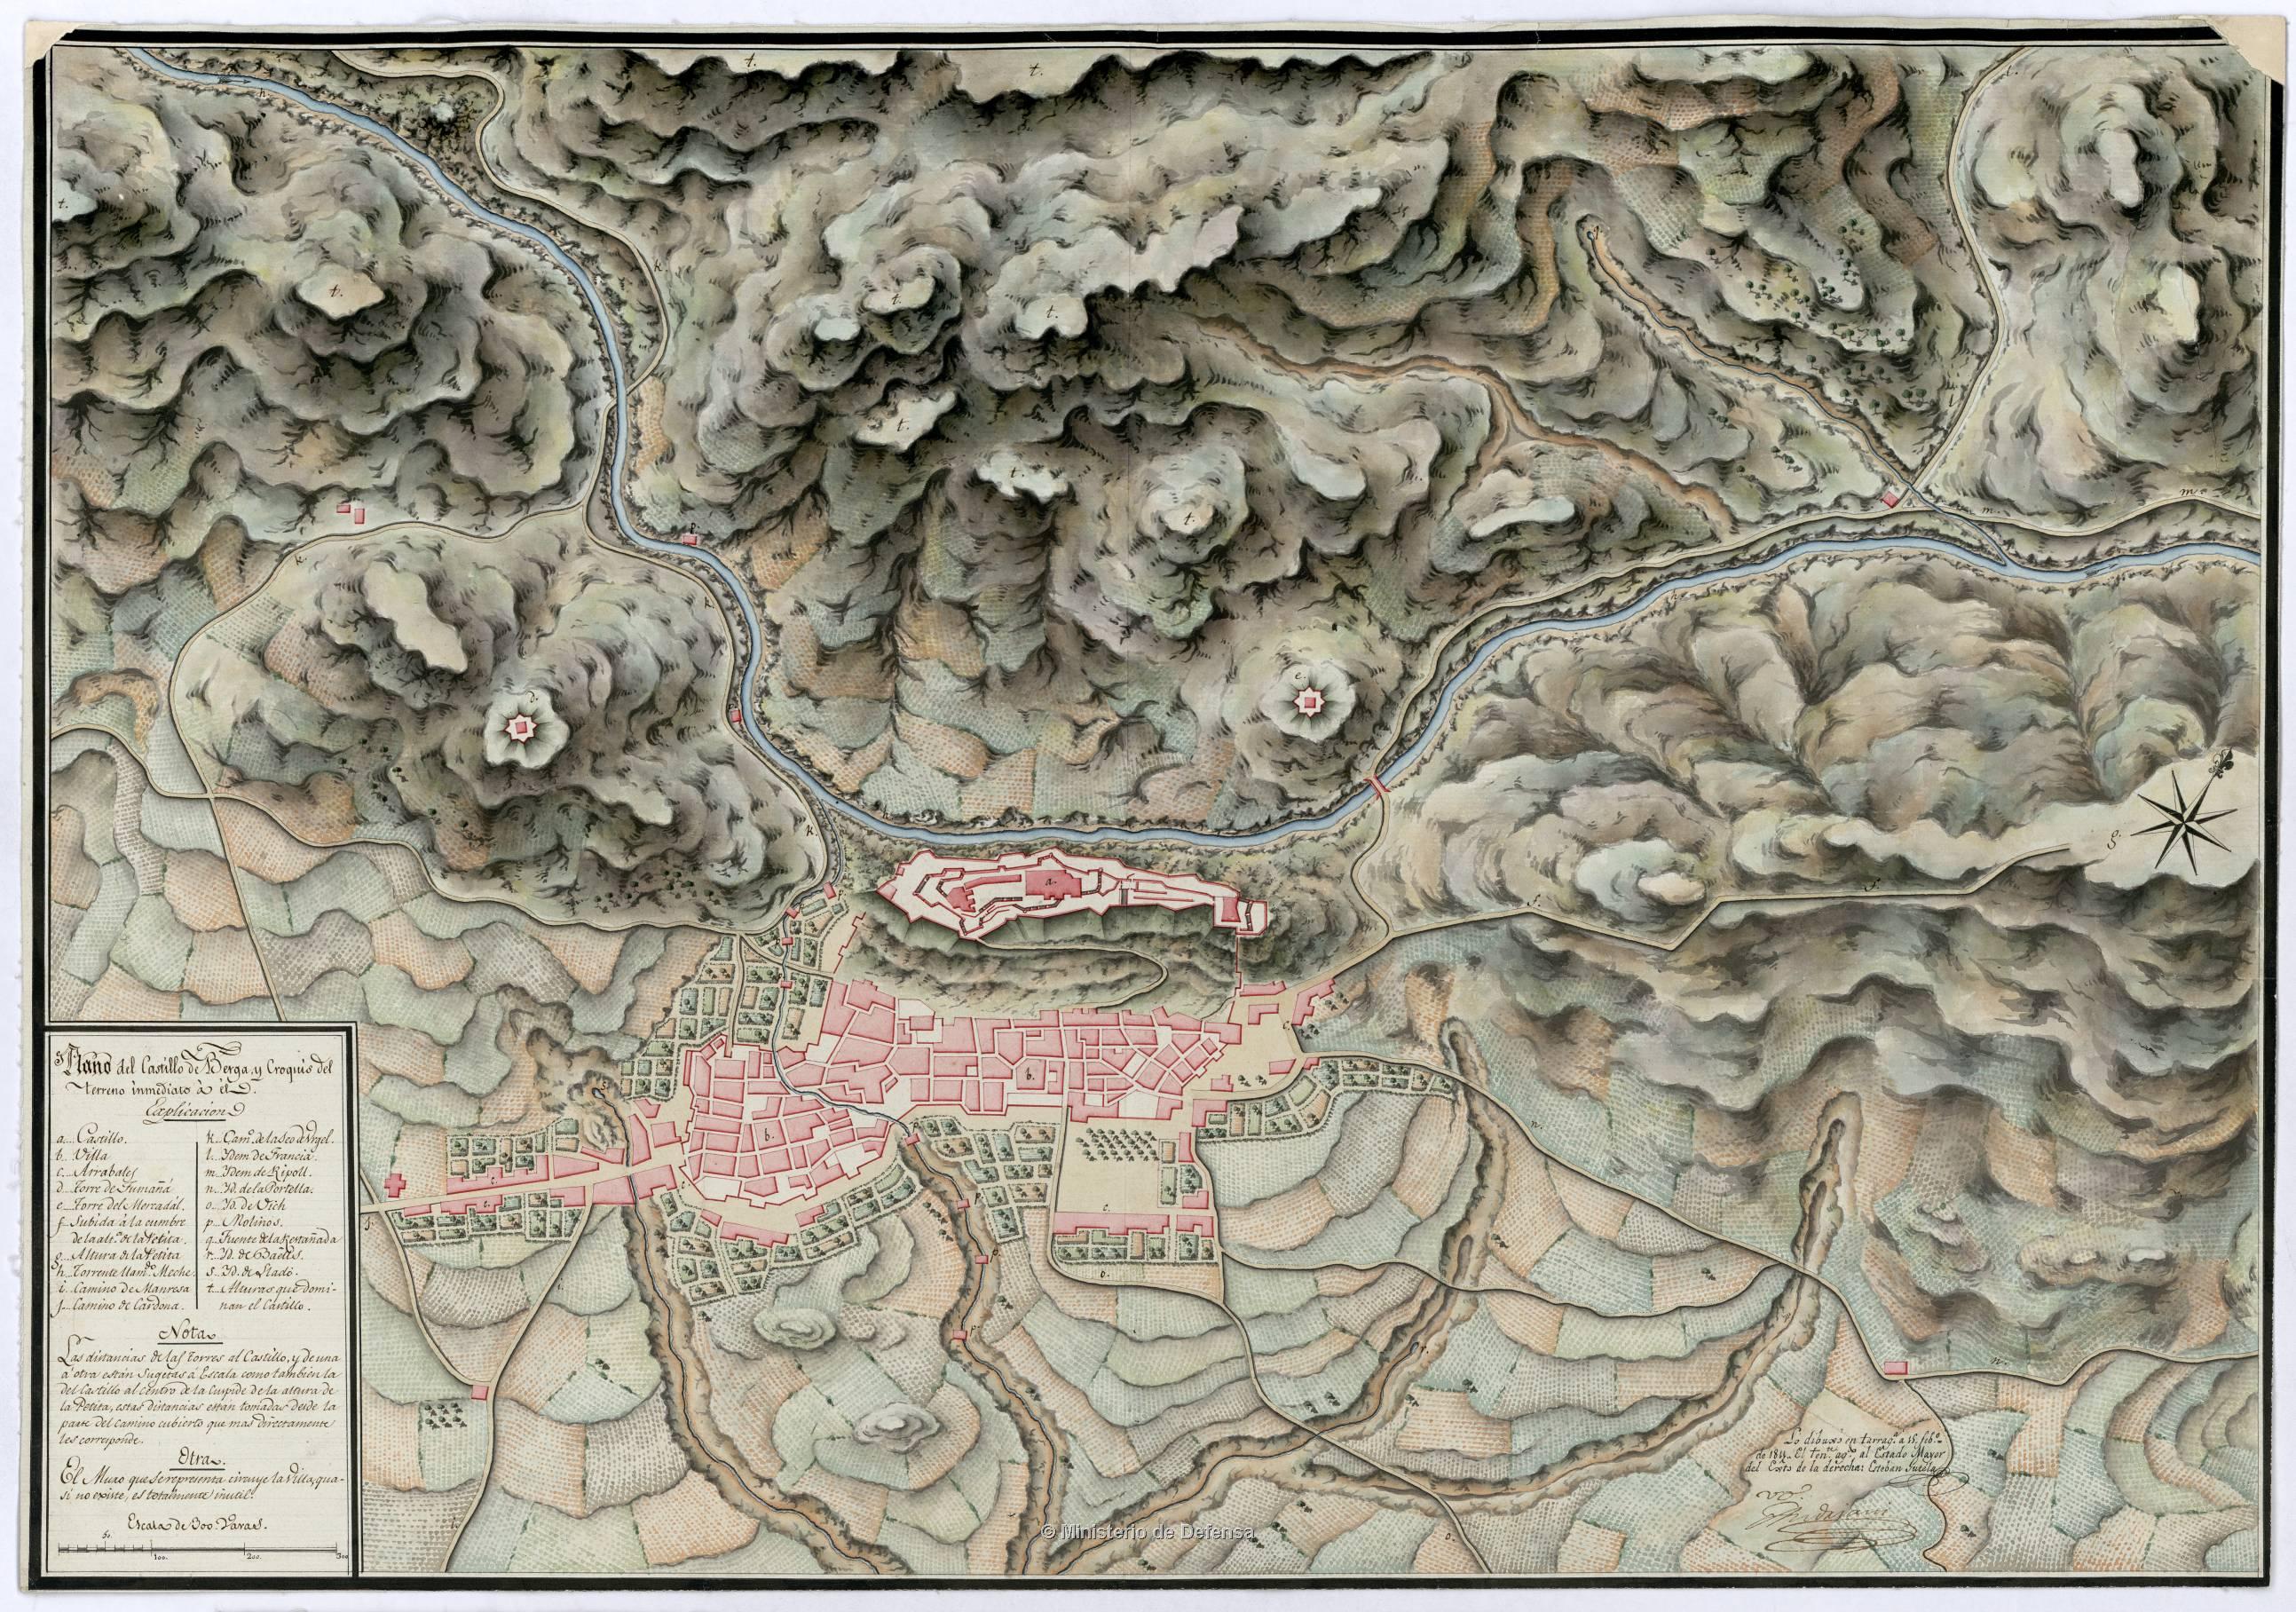 Plano del Castillo de Berga, y Croquis del
terreno inmediato á él.
Explicacion
a... Castillo.
b.. Villa
c... Arrabales
d.. Torre de Fumañá
e.. Torre del Mercadál.
f.. Subida á la cumbre
de la alt.ª de la Petita.
g.. Altura de la Petita
h.. Torrente llam.do Meche.
i.. Camino de Manresa
j.. Camino de Cardona.
k.. Cam.º de la Seo de Urgel.
l.. Ydem de Francia.
m.. Ydem de Ripoll.
n.. Yd. de la Portella.
o.. Yd. de Vich
p.. Molinos.
q.. Fuente de la
r.. Yd. de
s.. Yd. de
t.. Alturas que domi-
nan el Castillo.
Nota
Las distancias de las Torres al Castillo, y de una
á otra están Sugetas á Escala como tambien la
del Castillo al centro de la Cuspide de la altura de
la Petita, estas distancias están tomadas desde la
parte del camino cubierto que mas directamente
les corresponde.
Otra.
El Muro que se representa circuye la Villa, qua-
si no existe, es totalmente inutil.
Escala de 300 Varas.
50.
100.
200.
300
Lo dibuxó en Tarrag.ª á 15 feb.º
de 1811. El Ten.te ag.do al Estado Mayor
del Exto de la derecha: Esteban
© Ministerio de Defensa